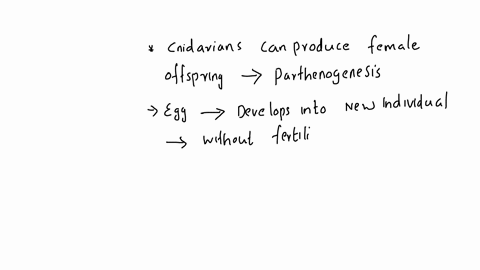 * Cnidarians can produce female
offspring → Parthenogenesis
→ Egg → Develops into New individual
→ without fertili